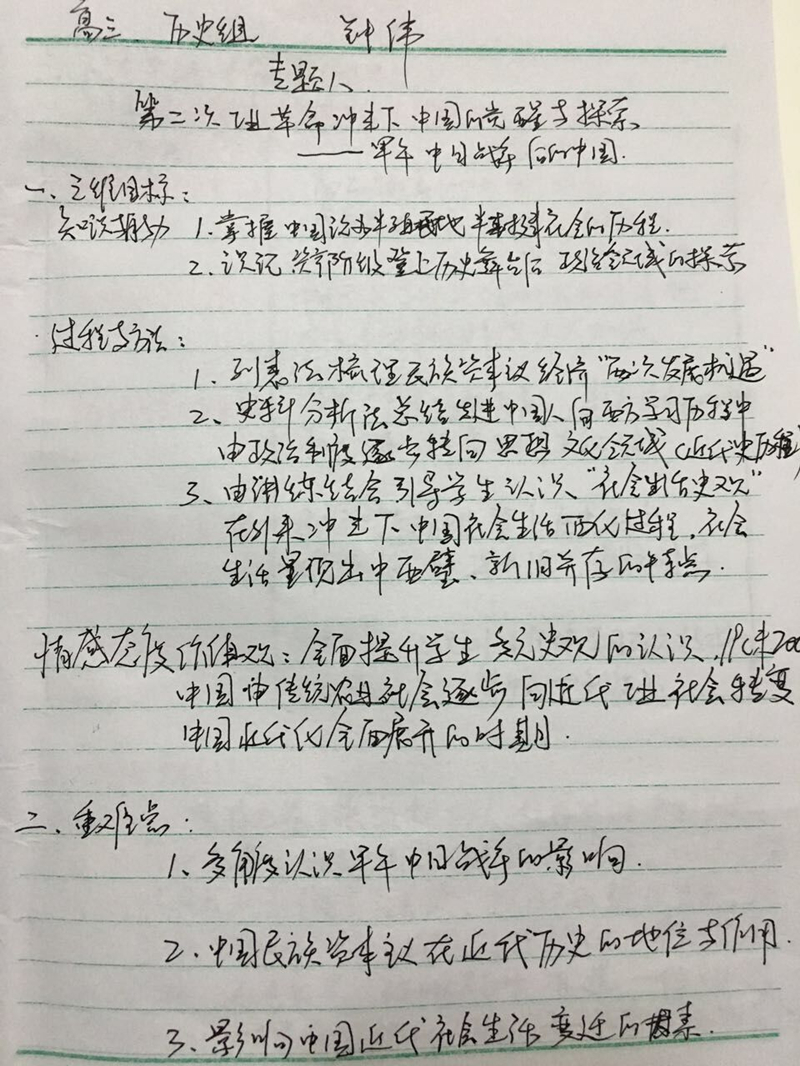 高三 历史组 钟伟
专题八
第二次工业革命冲击下中国的觉醒与探索
——甲午中日战争后的中国.
一、三维目标:
知识与能力 1.掌握中国沦为半殖民地半封建社会的历程.
2.识记资产阶级登上历史舞台后政治领域的探索
过程与方法:
1、列表法梳理民族资本主义经济"两次发展机遇"
2、史料分析法总结先进中国人向西方学习历程中
由政治制度逐步转向思想文化领域(近代史历程)
3、由讲练结合引导学生认识"社会生活史观"
在外来冲击下中国社会生活西化过程,社会
生活呈现出中西璧、新旧并存的特点.
情感态度价值观:全面提升学生多元史观的认识,19C末20C
中国由传统农业社会逐步向近代工业社会转变
中国近代化全面展开的时期.
二、重难点:
1、多角度认识甲午中日战争的影响.
2、中国民族资本主义在近代历史的地位与作用.
3、影响中国近代社会生活变迁的因素.